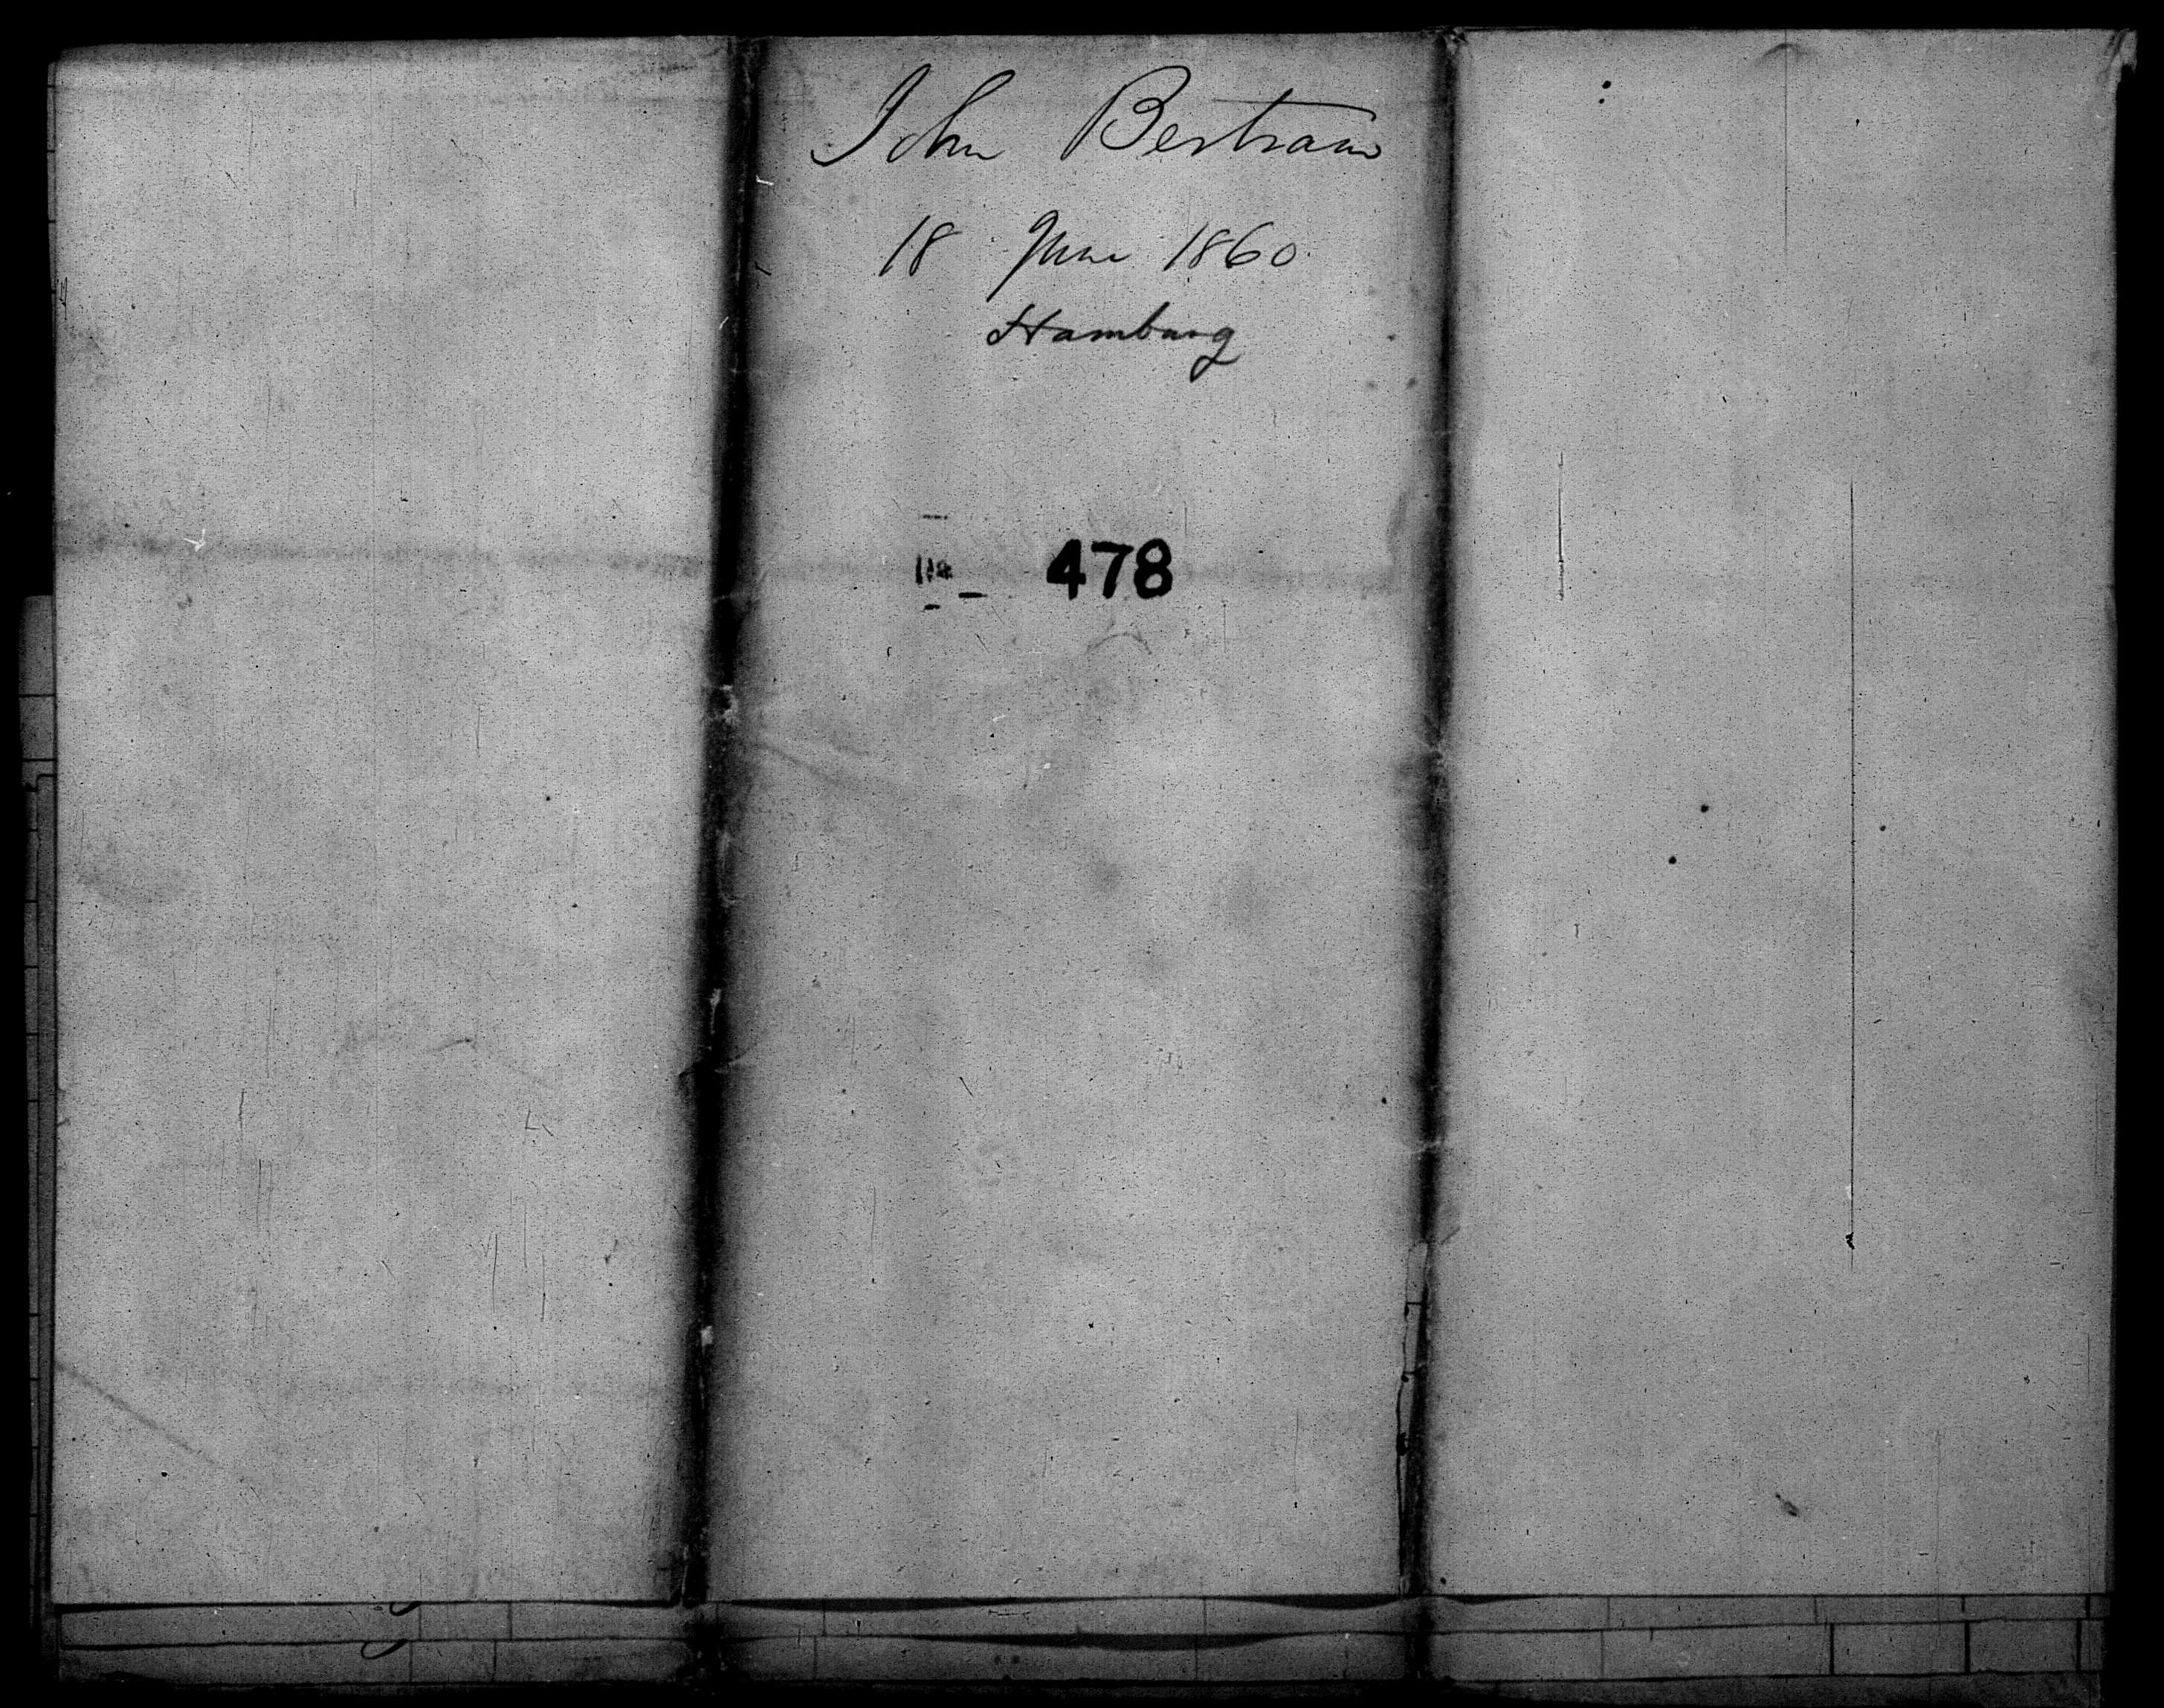 John Bertram
18 June 1860
Hamburg
478